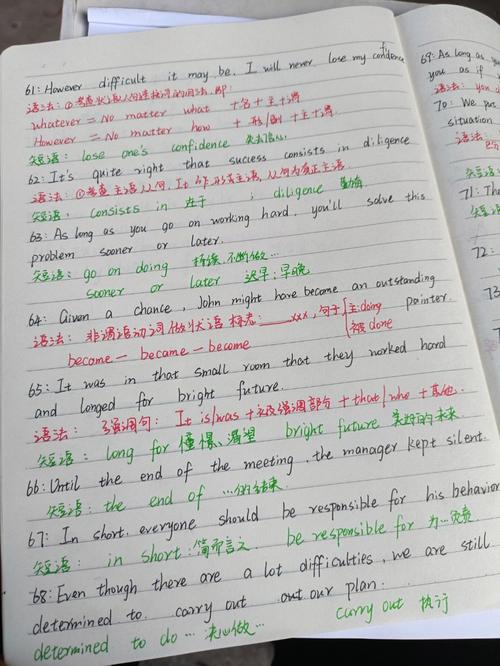 61: However difficult it may be, I will never lose my confidence
语法: ①考查状语从句连接词的用法.即
whatever = No matter what +名+主+谓
However = No matter how +形/副+主+谓.
短语: lose one's confidence 失去信心
62: It's quite right that success consists in diligence
语法: ①考查主语从何, It 作形式主语,从何为真正主语
短语: consists in 在于 ; diligence 勤奋
63: As long as you go on working hard, you'll solve this
problem sooner or later.
短语: go on doing 持续、不断做...
sooner or later 迟早;早晚
64: Given a chance, John might have become an outstanding
painter.
语法: 非谓语动词做状语 标志: ___xxx, 句子 主:doing
被done
become — became — become
65: It was in that small room that they worked hard
and longed for bright future.
语法: 强调句: It is/was +被强调部分 + that/who +其他.
短语: long for 憧憬、渴望 bright future 美好的未来
66: Until the end of the meeting, the manager kept silent.
短语: the end of ...的结束
67: In short, everyone should be responsible for his behavior
短语: in short: 简而言之 be responsible for 为...负责
68: Even though there are a lot difficulties, we are still
determined to carry out out our plan.
determined to do ... 决心做... carry out 执行
69: As long as
you as if
语法: you
70: We pos
situation
语法:
71: The
72:
73
7